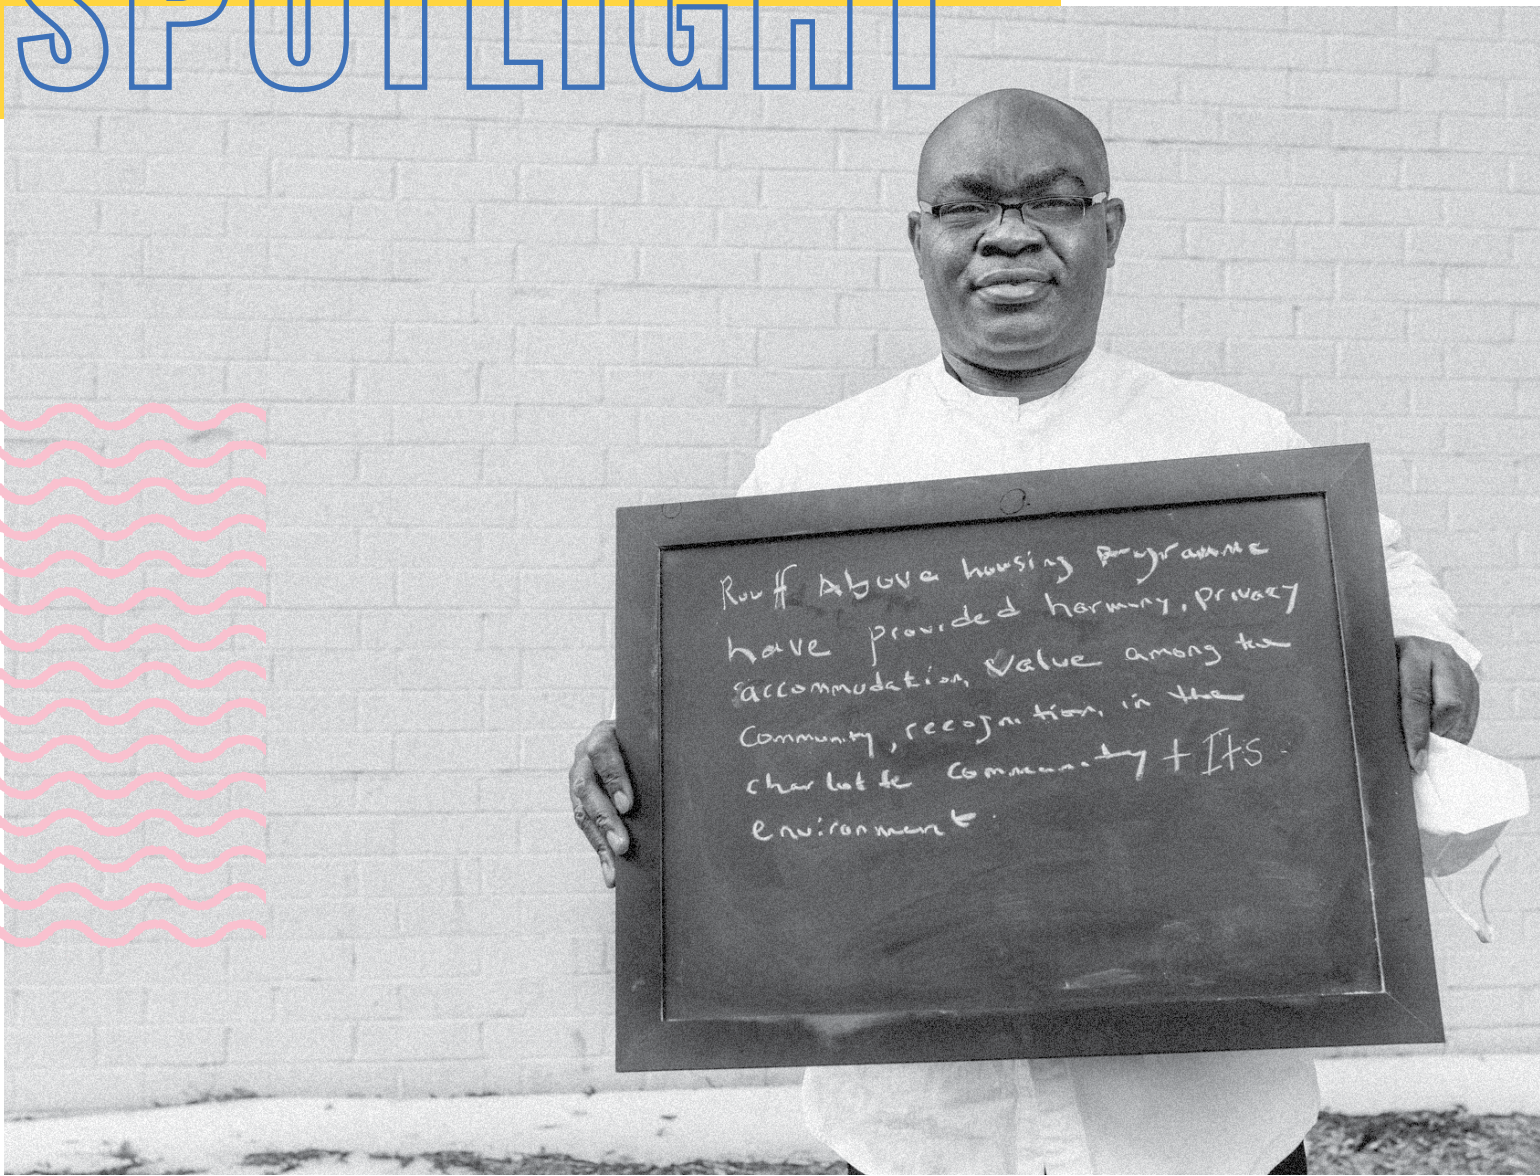 SPOTLIGHT
Rooff Above housing Programme
have provided harmony, privacy
accommodation, value among the
Community, recognition, in the
charlotte Community + Its
environment.